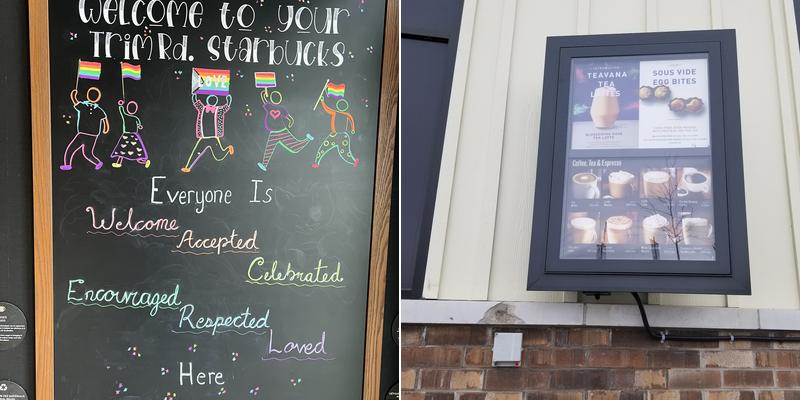 WELCOME TO YOUR
TRIM RD. STARBUCKS
LOVE
Everyone Is
Welcome
Accepted
Celebrated
Encouraged
Respected
Loved
Here
TEAVANA
TEA
LATTES
SOUS VIDE
EGG BITES
Coffee, Tea & Espresso